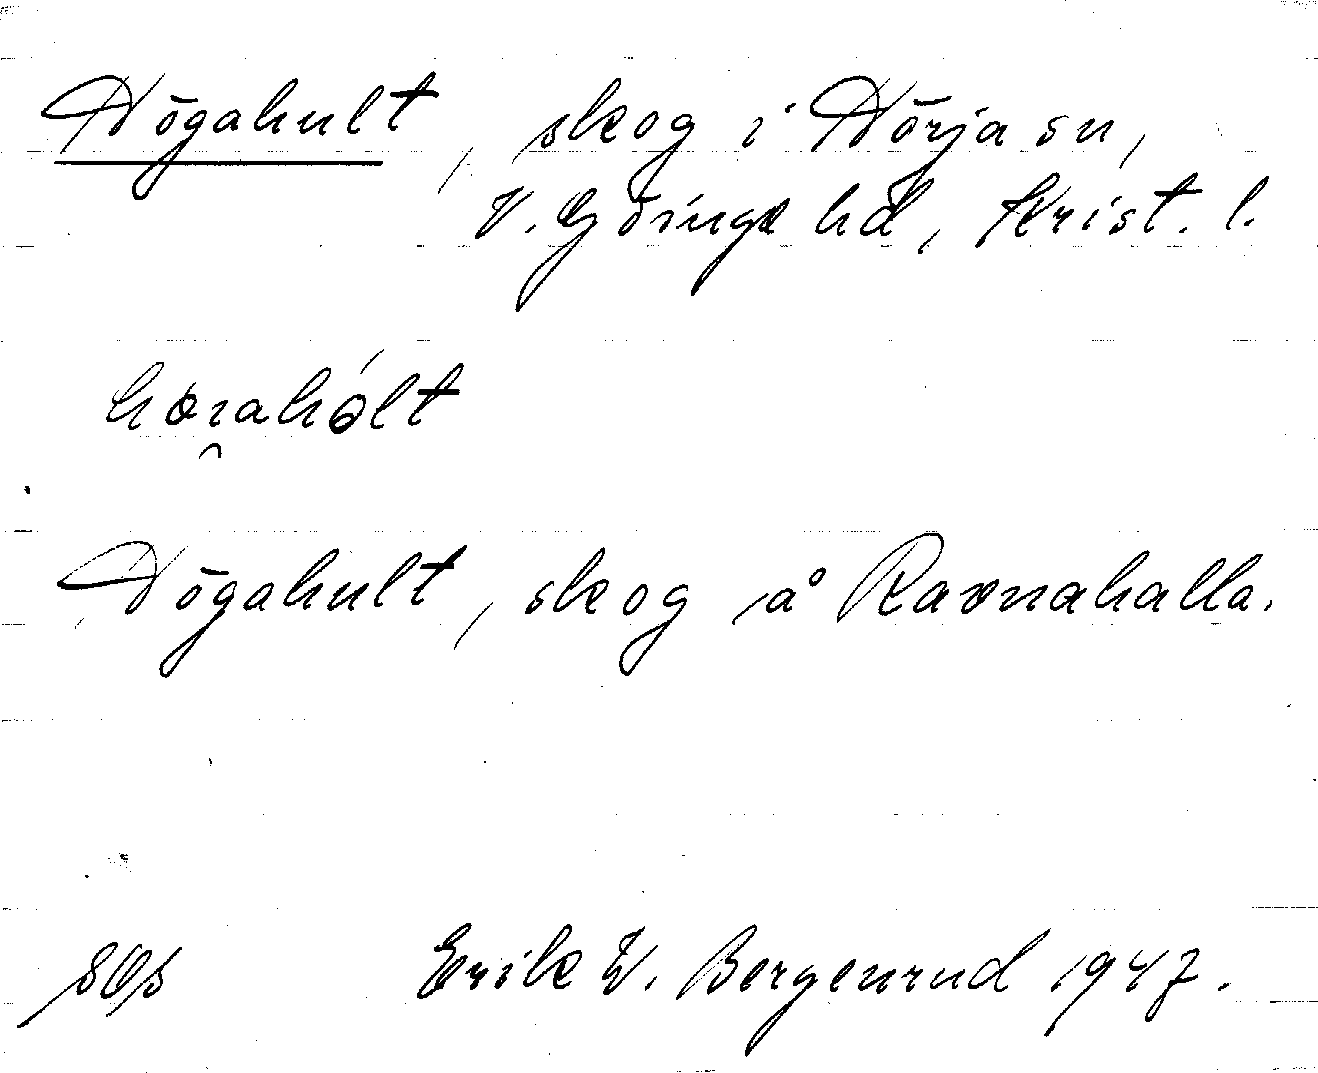 Högahult, skog i Hörja sn,
V. Göinge hd, Krist. l.
Högahult, skog å Ravnahalla.
Erik W. Bergenrud 1947.